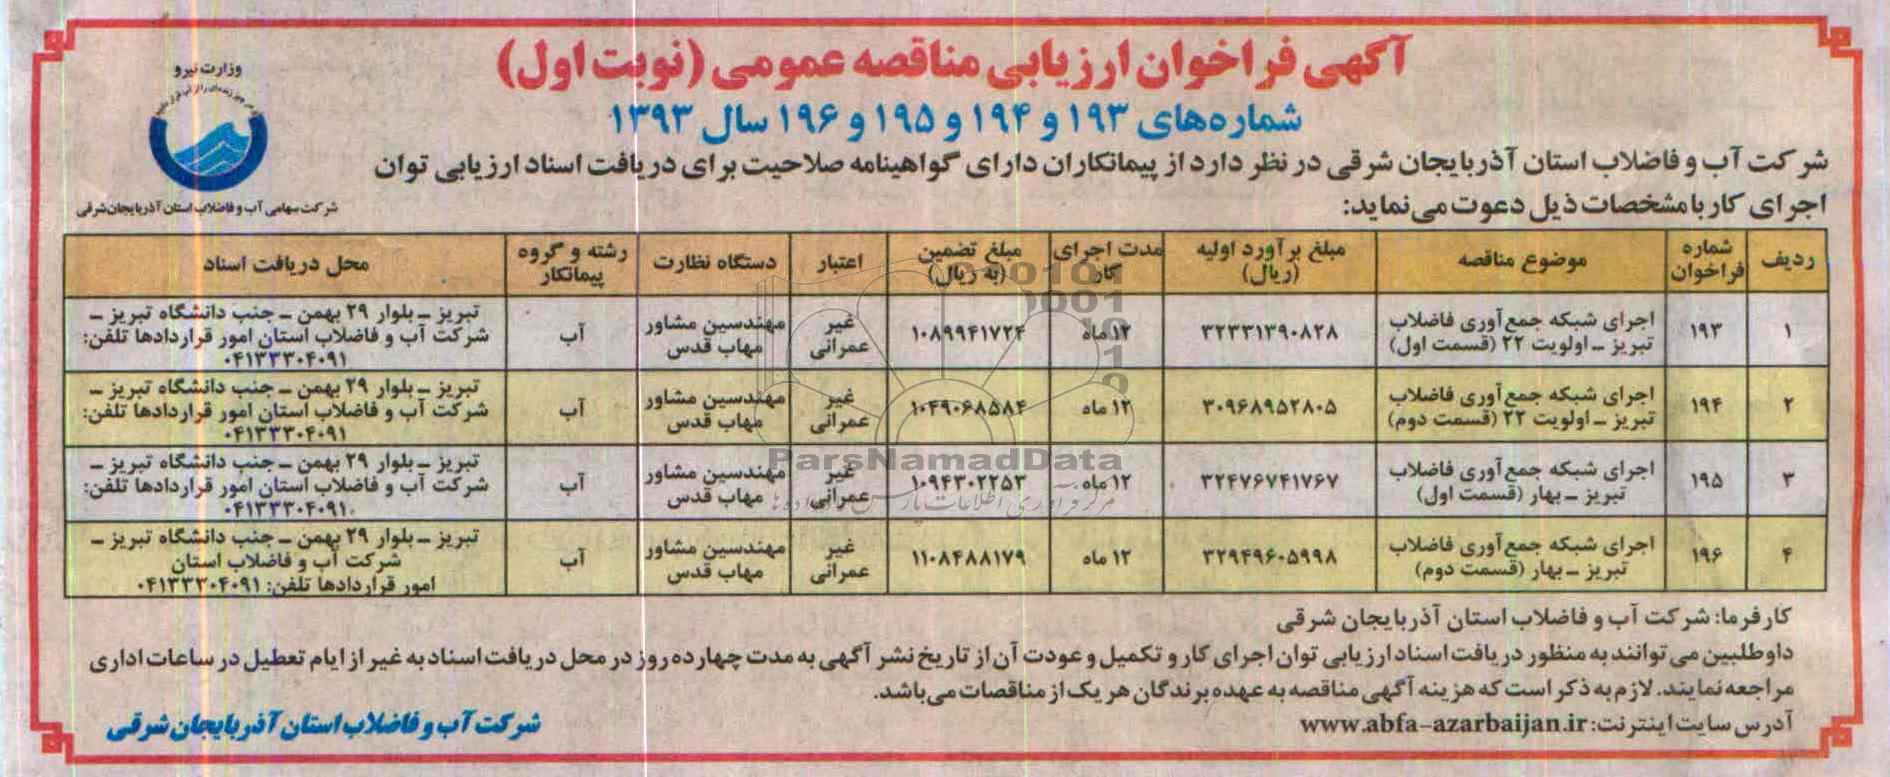 آگهی فراخوان ارزیابی مناقصه عمومی (نوبت اول)
شماره‌های ۱۹۳ و ۱۹۴ و ۱۹۵ و ۱۹۶ سال ۱۳۹۳
وزارت نیرو
شرکت سهامی آب و فاضلاب استان آذربایجان شرقی
شرکت آب و فاضلاب استان آذربایجان شرقی در نظر دارد از پیمانکاران دارای گواهینامه صلاحیت برای دریافت اسناد ارزیابی توان
اجرای کار با مشخصات ذیل دعوت می‌نماید:
ردیف | شماره فراخوان | موضوع مناقصه | مبلغ برآورد اولیه (ریال) | مدت اجرای کار | مبلغ تضمین (به ریال) | اعتبار | دستگاه نظارت | رشته و گروه پیمانکار | محل دریافت اسناد
۱ | ۱۹۳ | اجرای شبکه جمع‌آوری فاضلاب تبریز ـ اولویت ۲۲ (قسمت اول) | ۳۲۲۳۱۳۹۰۸۲۸ | ۱۲ ماه | ۱۰۸۹۹۴۱۷۲۴ | غیر عمرانی | مهندسین مشاور مهاب قدس | آب | تبریز ـ بلوار ۲۹ بهمن ـ جنب دانشگاه تبریز ـ شرکت آب و فاضلاب استان امور قراردادها تلفن: ۰۴۱۳۳۳۰۴۰۹۱
۲ | ۱۹۴ | اجرای شبکه جمع‌آوری فاضلاب تبریز ـ اولویت ۲۲ (قسمت دوم) | ۳۰۹۶۸۹۵۲۸۰۵ | ۱۲ ماه | ۱۰۴۹۰۶۸۵۸۴ | غیر عمرانی | مهندسین مشاور مهاب قدس | آب | تبریز ـ بلوار ۲۹ بهمن ـ جنب دانشگاه تبریز ـ شرکت آب و فاضلاب استان امور قراردادها تلفن: ۰۴۱۳۳۳۰۴۰۹۱
۳ | ۱۹۵ | اجرای شبکه جمع‌آوری فاضلاب تبریز ـ بهار (قسمت اول) | ۳۲۴۷۶۷۴۱۷۶۷ | ۱۲ ماه | ۱۰۹۴۳۰۲۲۵۳ | غیر عمرانی | مهندسین مشاور مهاب قدس | آب | تبریز ـ بلوار ۲۹ بهمن ـ جنب دانشگاه تبریز ـ شرکت آب و فاضلاب استان امور قراردادها تلفن: ۰۴۱۳۳۳۰۴۰۹۱
۴ | ۱۹۶ | اجرای شبکه جمع‌آوری فاضلاب تبریز ـ بهار (قسمت دوم) | ۳۲۹۴۹۶۰۵۹۹۸ | ۱۲ ماه | ۱۱۰۸۴۸۸۱۷۹ | غیر عمرانی | مهندسین مشاور مهاب قدس | آب | تبریز ـ بلوار ۲۹ بهمن ـ جنب دانشگاه تبریز ـ شرکت آب و فاضلاب استان امور قراردادها تلفن: ۰۴۱۳۳۳۰۴۰۹۱
ParsNamadData
کارفرما: شرکت آب و فاضلاب استان آذربایجان شرقی
داوطلبین می‌توانند به منظور دریافت اسناد ارزیابی توان اجرای کار و تکمیل و عودت آن از تاریخ نشر آگهی به مدت چهارده روز در محل دریافت اسناد به غیر از ایام تعطیل در ساعات اداری
مراجعه نمایند. لازم به ذکر است که هزینه آگهی مناقصه به عهده برندگان هر یک از مناقصات می‌باشد.
آدرس سایت اینترنت: www.abfa-azarbaijan.ir
شرکت آب و فاضلاب استان آذربایجان شرقی